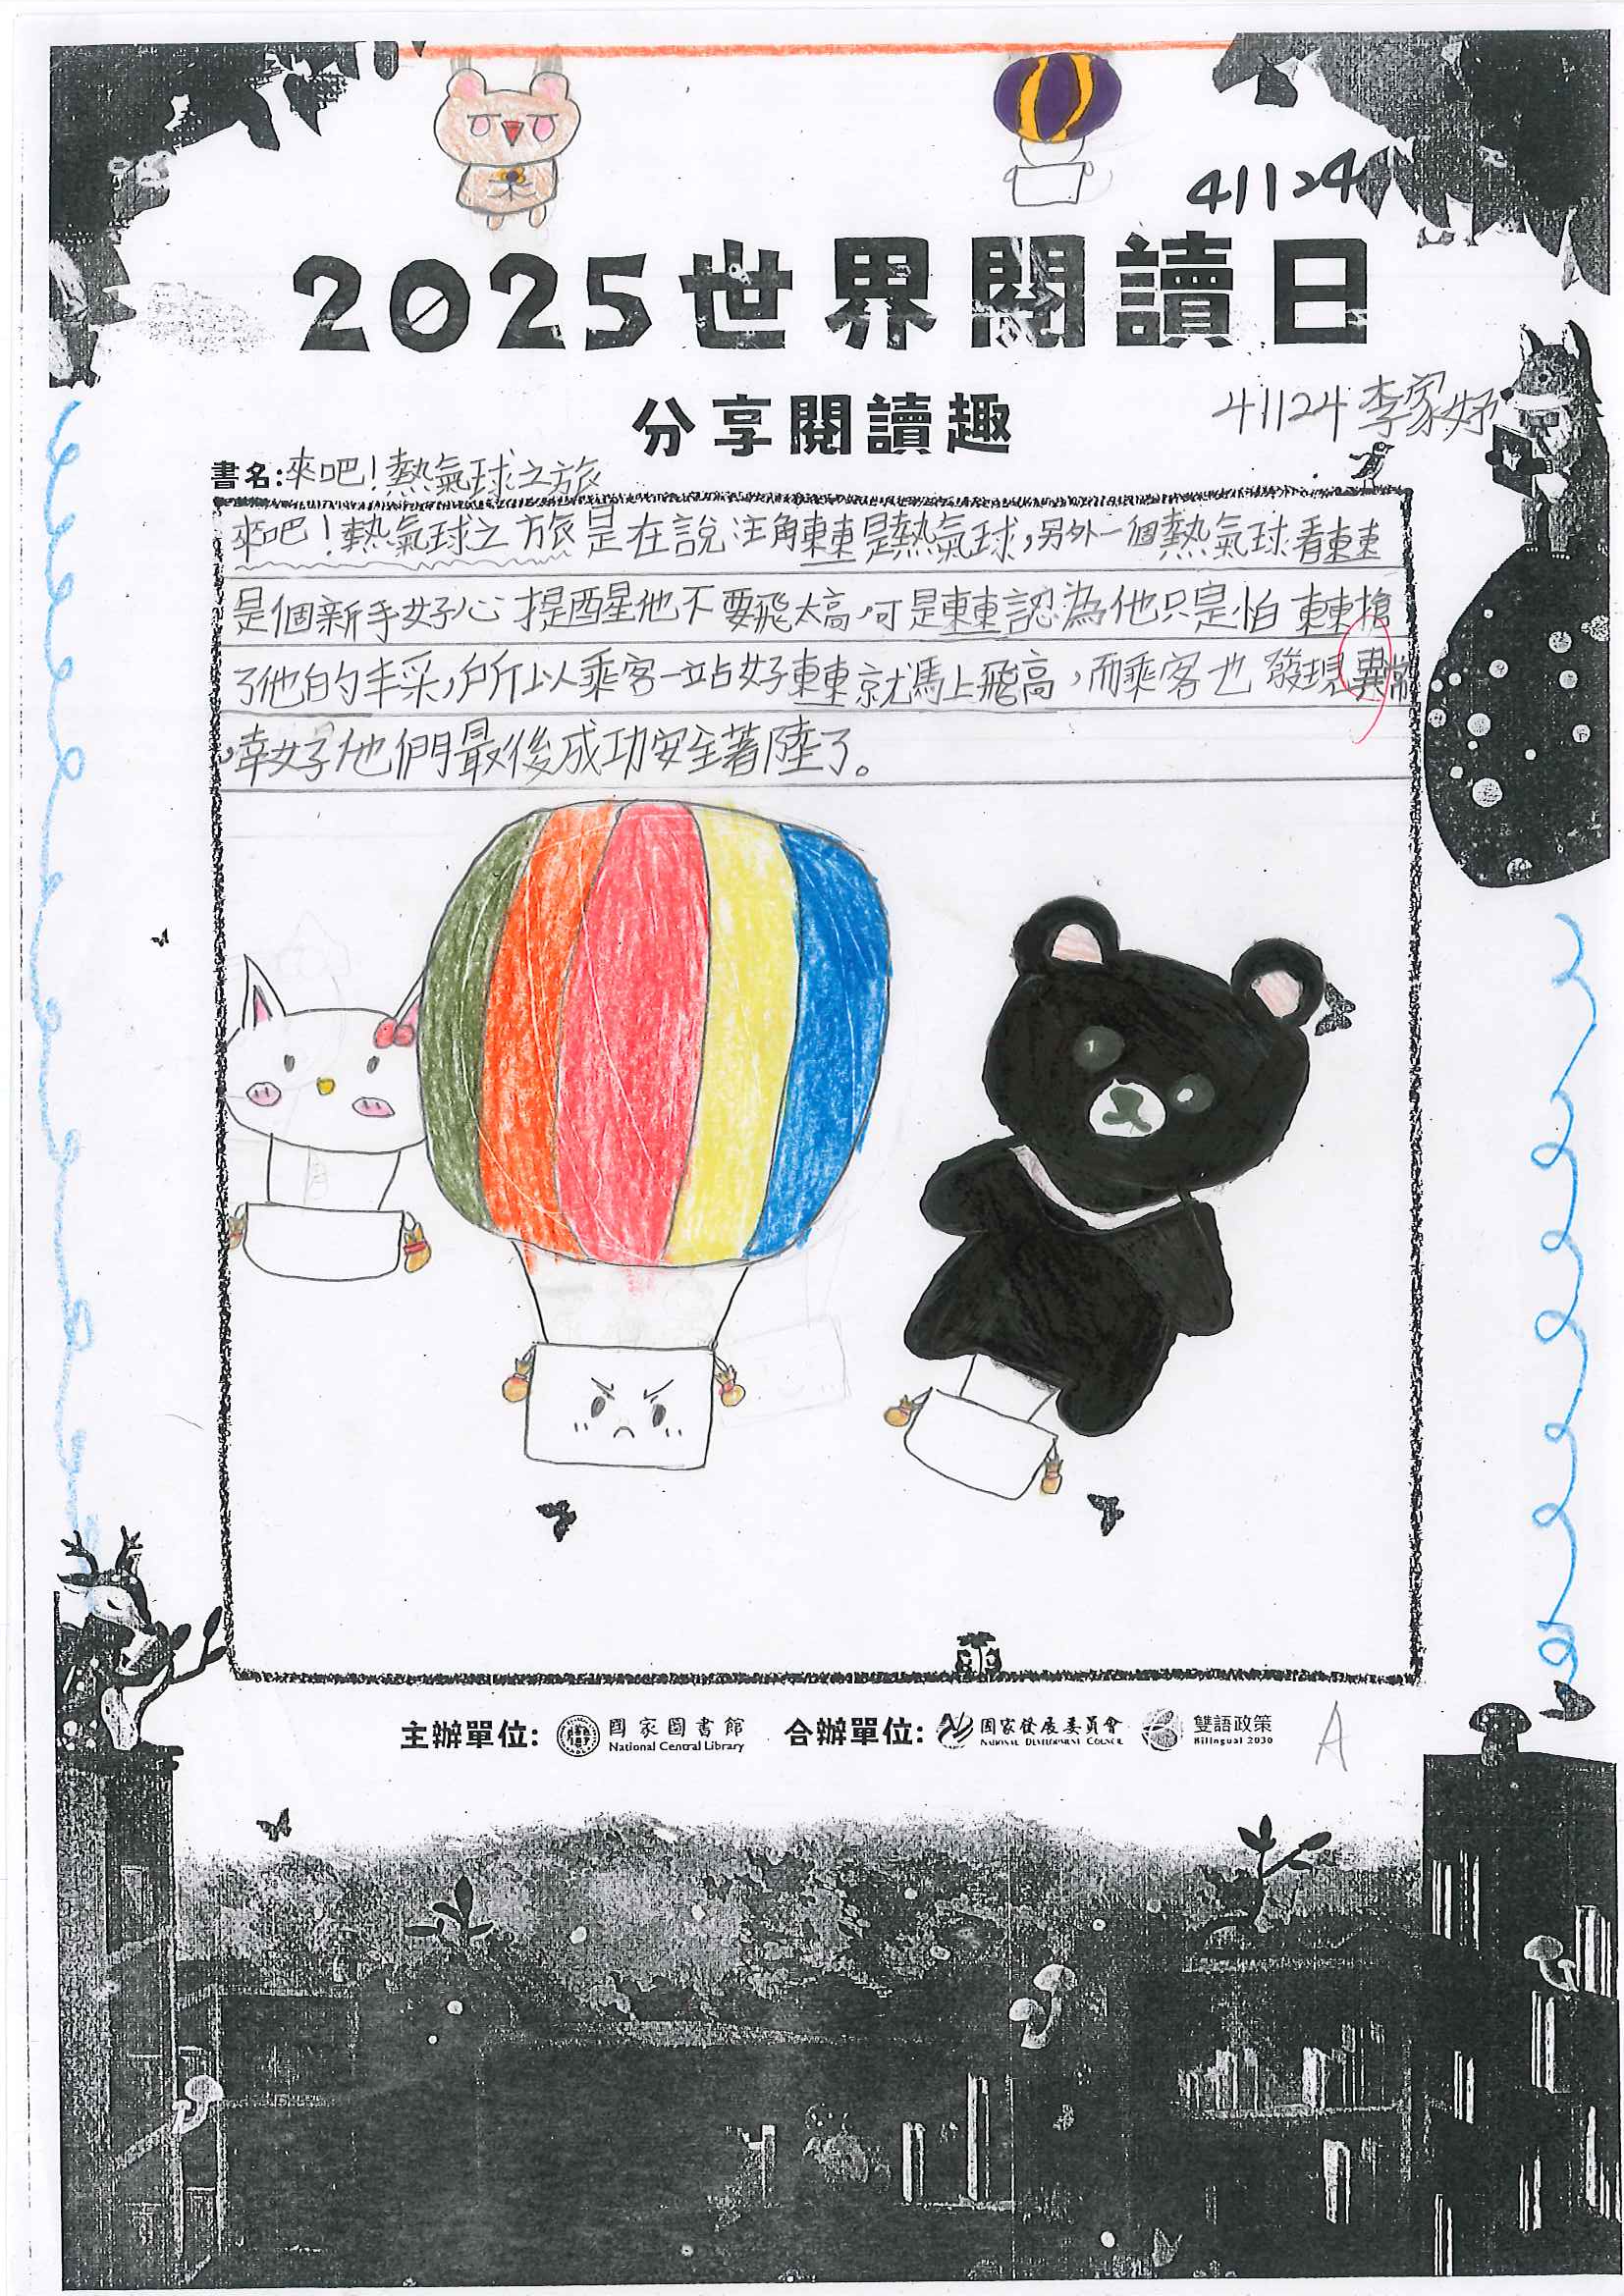 41124
2025世界閱讀日
分享閱讀趣
41124 李家妤
書名:來吧!熱氣球之旅
來吧!熱氣球之旅是在說主角東東是熱氣球,另外一個熱氣球看東東
是個新手好心提醒他不要飛太高,可是東東認為他只是怕東東搶
了他的丰采,所以乘客一站好東東就馬上飛高,而乘客也發現異常
,幸好他們最後成功安全著陸了。
主辦單位: 國家圖書館 National Central Library 合辦單位: 國家發展委員會 National Development Council 雙語政策 Bilingual 2030
A